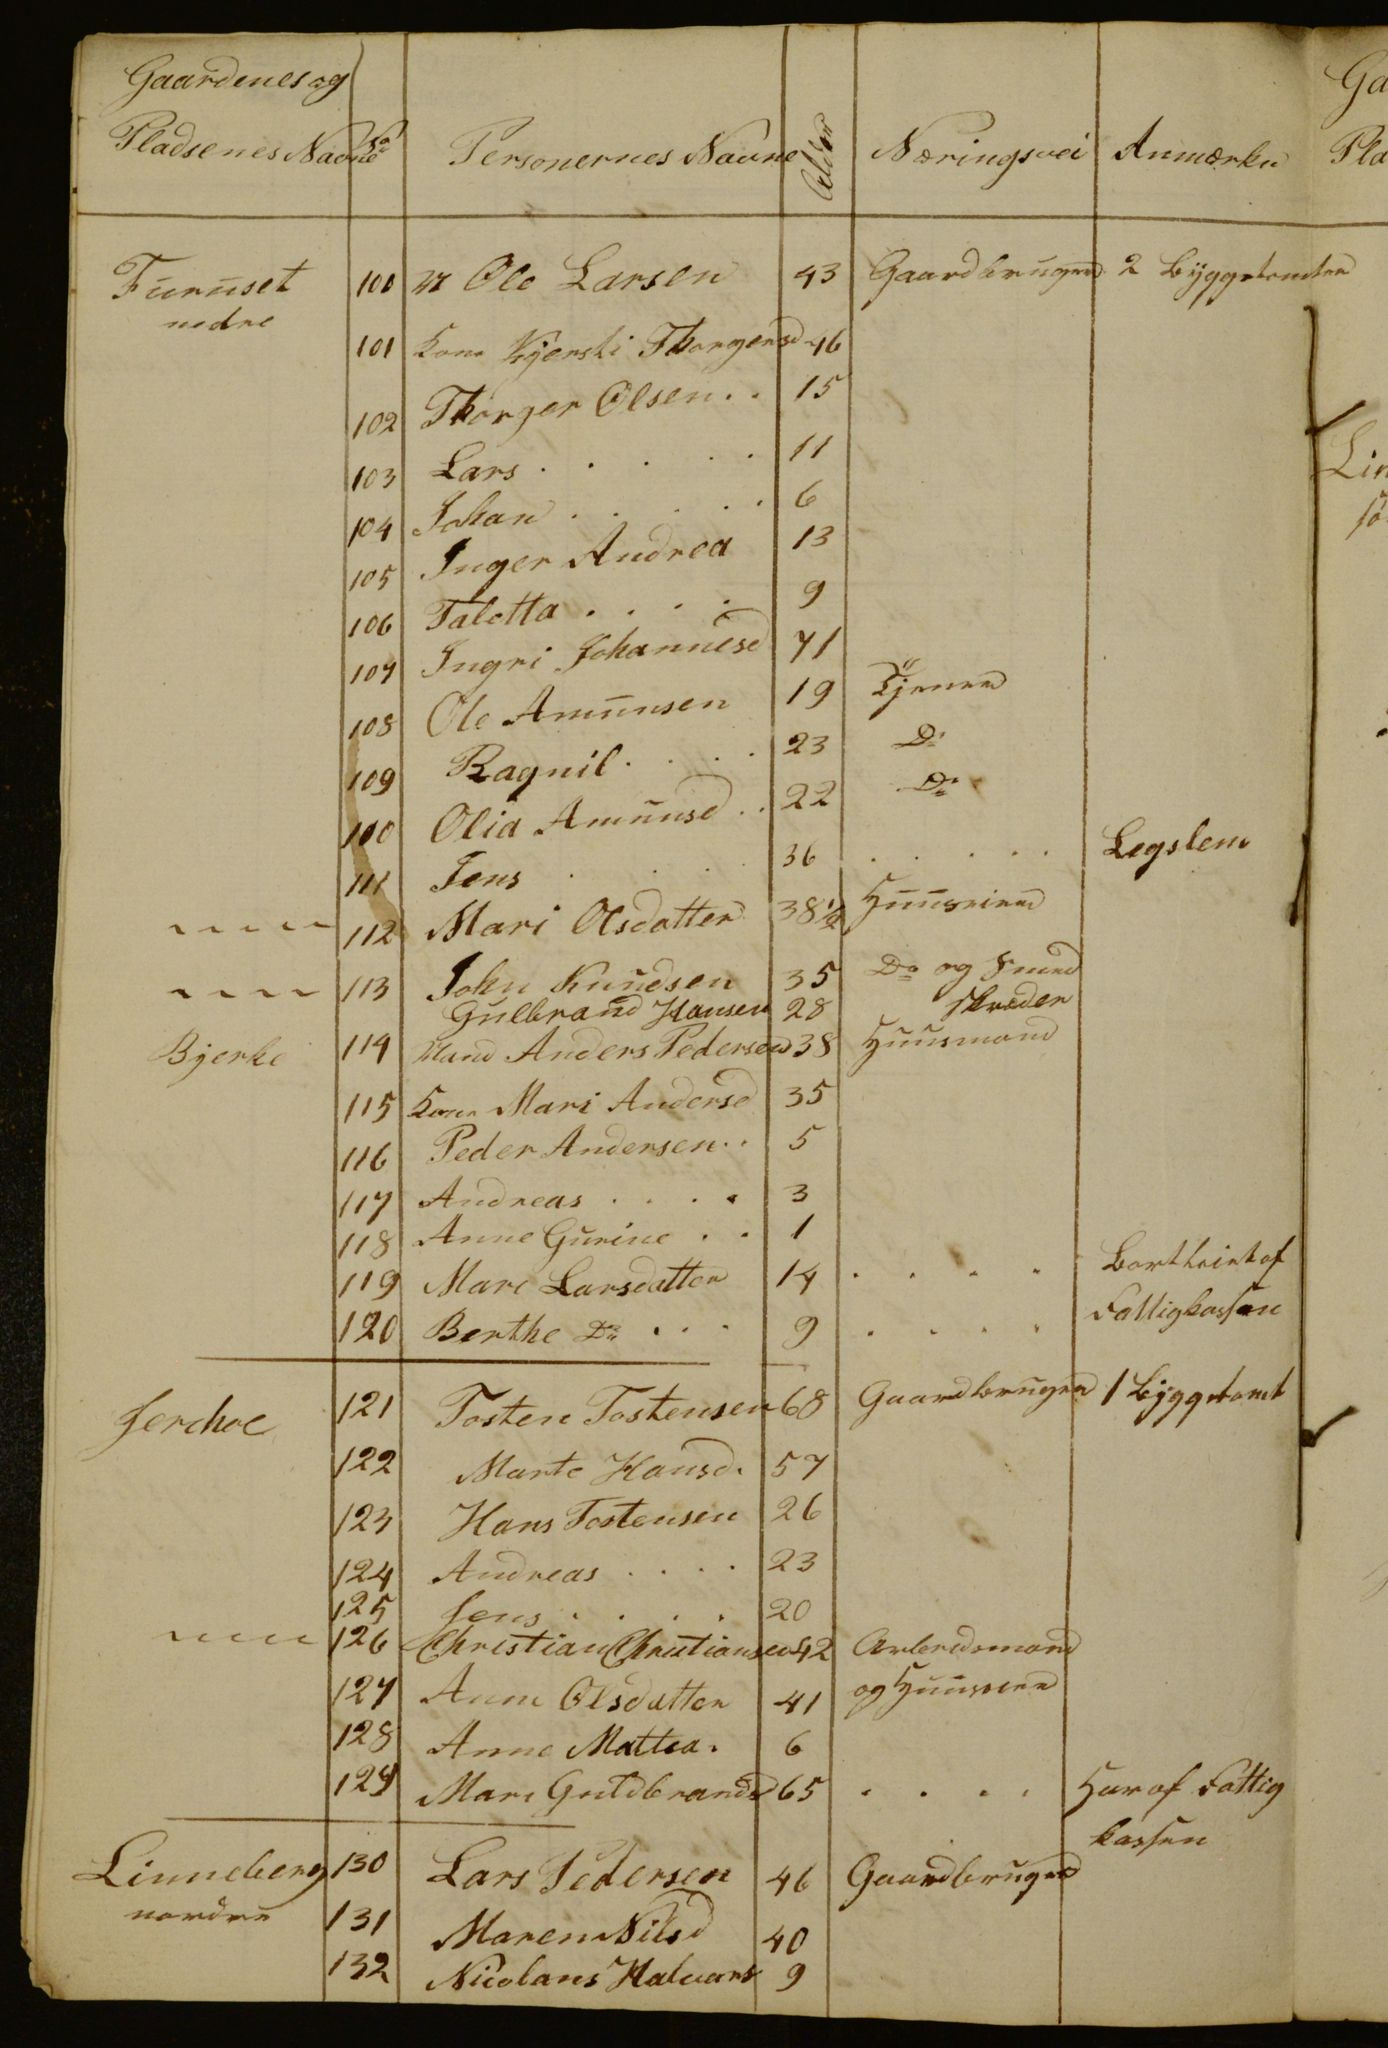 Gaardenes og
Pladsenes Navne No Personernes Navne Alder Næringsvei Anmærkn
Furuset 100 M Ole Larsen 43 Gaardbruger 2 Byggetomter
nedre
101 Kone Kjersti Thorgersd 46
102 Thorger Olsen . . 15
103 Lars . . . . . 11
104 Johan . . . . . 6
105 Inger Andrea 13
106 Taletta . . . . 9
107 Ingri Johannesd 71
108 Ole Amunsen 19 Tjener
109 Ragnil . . . . 23 Do
110 Olia Amunsd . . 22 Do
111 Jens . . . 36 . . . . . Legslem
112 Mari Olsdatter 38½ Huusleier
113 John Knudsen 35 Do og Smed
Gulbrand Hansen 28 Skreder
Bjerke 114 Mand Anders Pedersen 38 Huusmand
115 Kone Mari Andersd 35
116 Peder Andersen . . 5
117 Andreas . . . . 3
118 Anne Gurine . . 1
119 Mari Larsdatter 14 . . . . Bortleiet af
120 Berthe Do . . . 9 . . . . Fattigkassen
Jerchoe 121 Tosten Tostensen 68 Gaardbruger 1 Byggetomt
122 Marte Hansd. 57
123 Hans Tostensen 26
124 Andreas . . . . 23
125 Jens . . . . 20
126 Christian Christiansen 42 Arbeidsmand
127 Anne Olsdatter 41 og Huusleier
128 Anne Mattea . 6
129 Mari Guldbrandsd 65 . . . . Har af Fattig
kassen
Linneberg 130 Lars Pedersen 46 Gaardbruger
nordre 131 Maren Nilsd 40
132 Nicolaus Halvors 9
Ga
Pla
Lin
sø